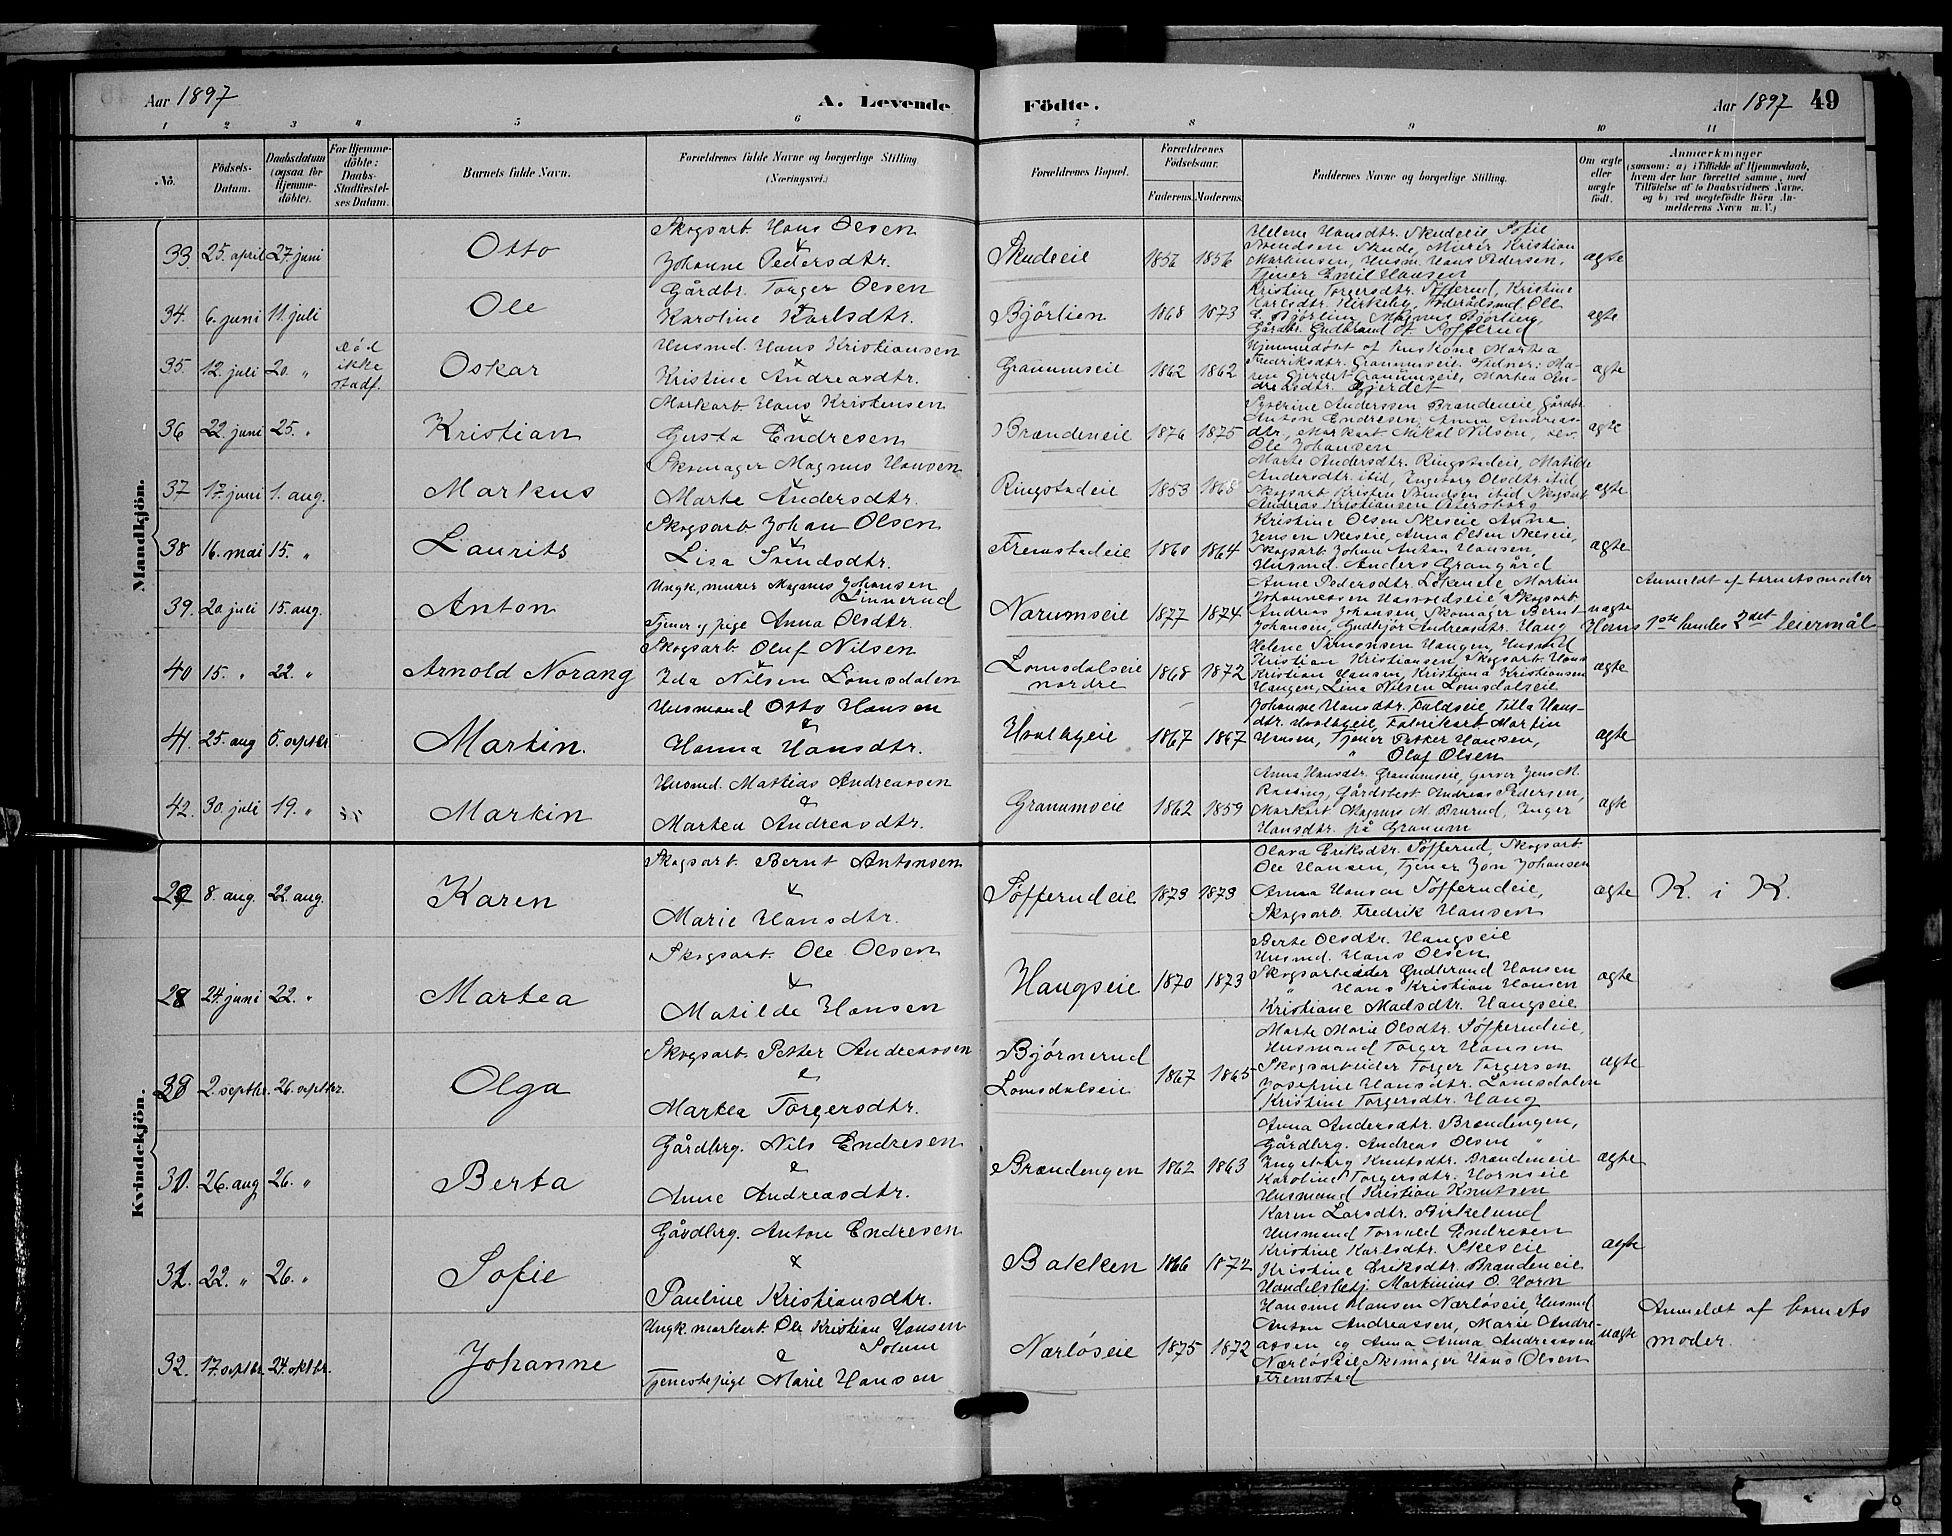 Aar 1897
A. Levende
Födte.
Aar 1897
49
1 2 3 4 5 6 7 8 9 10 11
No.
Födsels-Datum.
Daabsdatum (ogsaa for Hjemme-döbte).
For Hjemme-döbte: Daabs-Stadfæstel-ses Datum.
Barnets fulde Navn.
Forældrenes fulde Navne og borgerlige Stilling. (Næringsvei.)
Forældrenes Bopæl.
Forældrenes Födselsaar.
Faderens. Moderens.
Faddernes Navne og borgerlige Stilling.
Om ægte eller uægte födt.
Anmærkninger
(saasom: a) i Tilfælde af Hjemmedaab, hvem der har forrettet samme, med Tilföielse af to Daabsvidners Navne, og b) ved uægtefödte Börn An-melderens Navn m. V.)
Mandkjön.
33. 25. april 27 juni Otto
Skogsarb. Hans Olsen
&
Johanne Pedersdtr.
Skudeeie 1856 1856
Helene Hansdtr. Skudeeie Sofie
Svendsen Skude, Murer Kristian
Martinsen, Husm. Hans Pedersen,
Tjener Emil Hansen
ægte
34. 6. juni 11. juli Ole
Gårdbr. Torger Olsen
&
Karoline Karlsdtr.
Bjørlien 1868 1873
Kristine Torgersdtr. Søfferud, Kristine
Karlsdtr. Kirkeby, Føderådsmd. Ole
Bjørlien, Magnus Bjørlien,
Gårdbr. Gudbrand Søfferud
ægte
35. 12. juli 20. " død ikke stadf. Oskar
Husmd. Hans Kristiansen
&
Kristine Andreasdtr.
Granumseie 1862 1862
Hjemmedøbt af huskone Martea
Fredriksdtr. Granumseie. Vidner: Ma-
ren Gjerdet Granumseie, Martea An-
dreasdtr. Gjerdet
ægte
36 22. juni 25. " Kristian
Markarb. Hans Kristensen
&
Gusta Endresen
Brændeneie 1876 1875
Syverine Anderssen Brændeneie Gårdbr.
Anton Endresen, Anna Andreas-
dtr., Markarb. Mikal Nilsen,
Ole Johansen
ægte
37 17. juni 1. aug. Markus
Skomager Magnus Hansen
&
Marte Andersdtr.
Ringstadeie 1853 1868
Marte Andersdtr. Ringstadeie, Matilde
Andersdtr. itid, Ingeborg Olsdtr. itid
Skogsarb. Kristen Svendsen itid Skogsarb.
Andreas Kristiansen
ægte
38 16. mai 15. " Laurits
Skogsarb. Johan Olsen
&
Lisa Svendsdtr.
Fremstadeie 1860 1864
Kristine Olsen Skeseie Anne
Jensen Skeseie, Anna Olsen Skeseie,
Skogsarb. Johan Anton Hansen,
Husmd. Anders Grangård
ægte
39. 20. juli 15. aug. Anton
Ungk. murer Magnus Johansen
Linnerud
Tjener og pige Anna Olsdtr.
Narumseie 1877 1874
Anne Pedersdtr. Løkeneie, Martin
Johannessen Hasvoldseie, Skogsarb.
Andreas Johansen, Skomager Bernt
Johansen, Gudbjør Andreasdtr. Haug
uægte
Anmeldt af barnets moder
Hans 1ste hendes 2det leiermål
40 15. " 22. " Arnold Norang
Skogsarb. Oluf Nilsen
&
Ida Nilsen Lomsdalen
Lomsdalseie
nordre
1868 1872
Helene Simonsen Haugen, Husmd.
Kristian Kristiansen, Skogsarb. Hans
Kristian Hansen, Kristiana Kristiansen
Haugen, Lina Nilsen Lomsdalseie
ægte
41. 25. aug 5. septbr Martin.
Husmand Otto Hansen
&
Hanna Hansdtr.
Hvalbyeie 1867 1867
Johanne Hansdtr. Faldseie Tilla Hans-
dtr. Hvalbyeie, Fabrikarb. Martin
Hansen, Tjener Petter Hansen,
" Olaf Olsen
ægte
42. 30. juli 19. " Martin
Husmd. Mathias Andreassen
&
Martea Andreasdtr.
Granumseie 1862 1859
Anna Hansdtr. Granumseie, Garver Jens M.
Gårdbest. Andreas Pedersen,
Markarb. Magnus M. Inger
Hansdtr. på Granum
ægte
Kvindekjön.
8. aug. 22. aug. Karen
Skogsarb. Bernt Antonsen
&
Marie Hansdtr.
Søfferudeie 1873 1873
Olava Eriksdtr. Søfferud, Skogsarb.
Ole Hansen, Tjener Jon Johansen
Anna Hansen Søfferudeie,
Skogsarb. Fredrik Hansen
ægte
K. i K.
28 24. juni 22. " Martea
Skogsarb. Ole Olsen
&
Matilde Hansen
Haugseie 1870 1873
Berte Olsdtr. Haugseie
Husmd. Hans Olsen
Skogsarbeider Gudbrand Hansen
" Hans Kristian Hansen
Kristiane Madsdtr. Haugseie
ægte
2. septbr. 26. septbr. Olga
Skogsarb. Petter Andreassen
&
Martea Torgersdtr.
Bjørnerud
Lomsdalseie
1867 1865
Marte Marie Olsdtr. Søfferudeie,
Husmand Torger Hansen
Skogsarbeider Torger Torgersen
Josefine Hansdtr. Lomsdalen
Kristine Torgersdtr. Haug
ægte
30. 26. aug 26. " Berta
Gårdbrg. Nils Endresen
&
Anne Andreasdtr.
Brændengen 1862 1863
Anna Andersdtr. Brændengen,
Gårdbrg. Andreas Olsen "
Ingeborg Knutsdtr. Brændeneie
Karoline Torgersdtr. Hornseie
Husmand Kristian Knutsen
ægte
31. 22. " 26. " Sofie
Gårdbrg. Anton Endresen
&
Pauline Kristiansdtr.
Bakken 1866 1872
Karen Larsdtr. Birkelund
Husmand Torvald Endresen
Kristine Karlsdtr. Skeseie
Kristine Eriksdtr. Brændeneie
Handelsbetj. Martinius O. Horn
ægte
32. 17. septbr. 24. oktbr. Johanne
Ungk. markarb. Ole Kristian Hansen
Solum
&
Tjenestepige Marie Hansen
Nærløseie 1875 1872
Hansine Hansen Nærløseie, Husmd
Anton Andreassen, Marie Andre-
assen og Anna Andreassen
Nærløseie Skomager Hans Olsen
Fremstad
uægte
Anmeldt af barnets
moder.